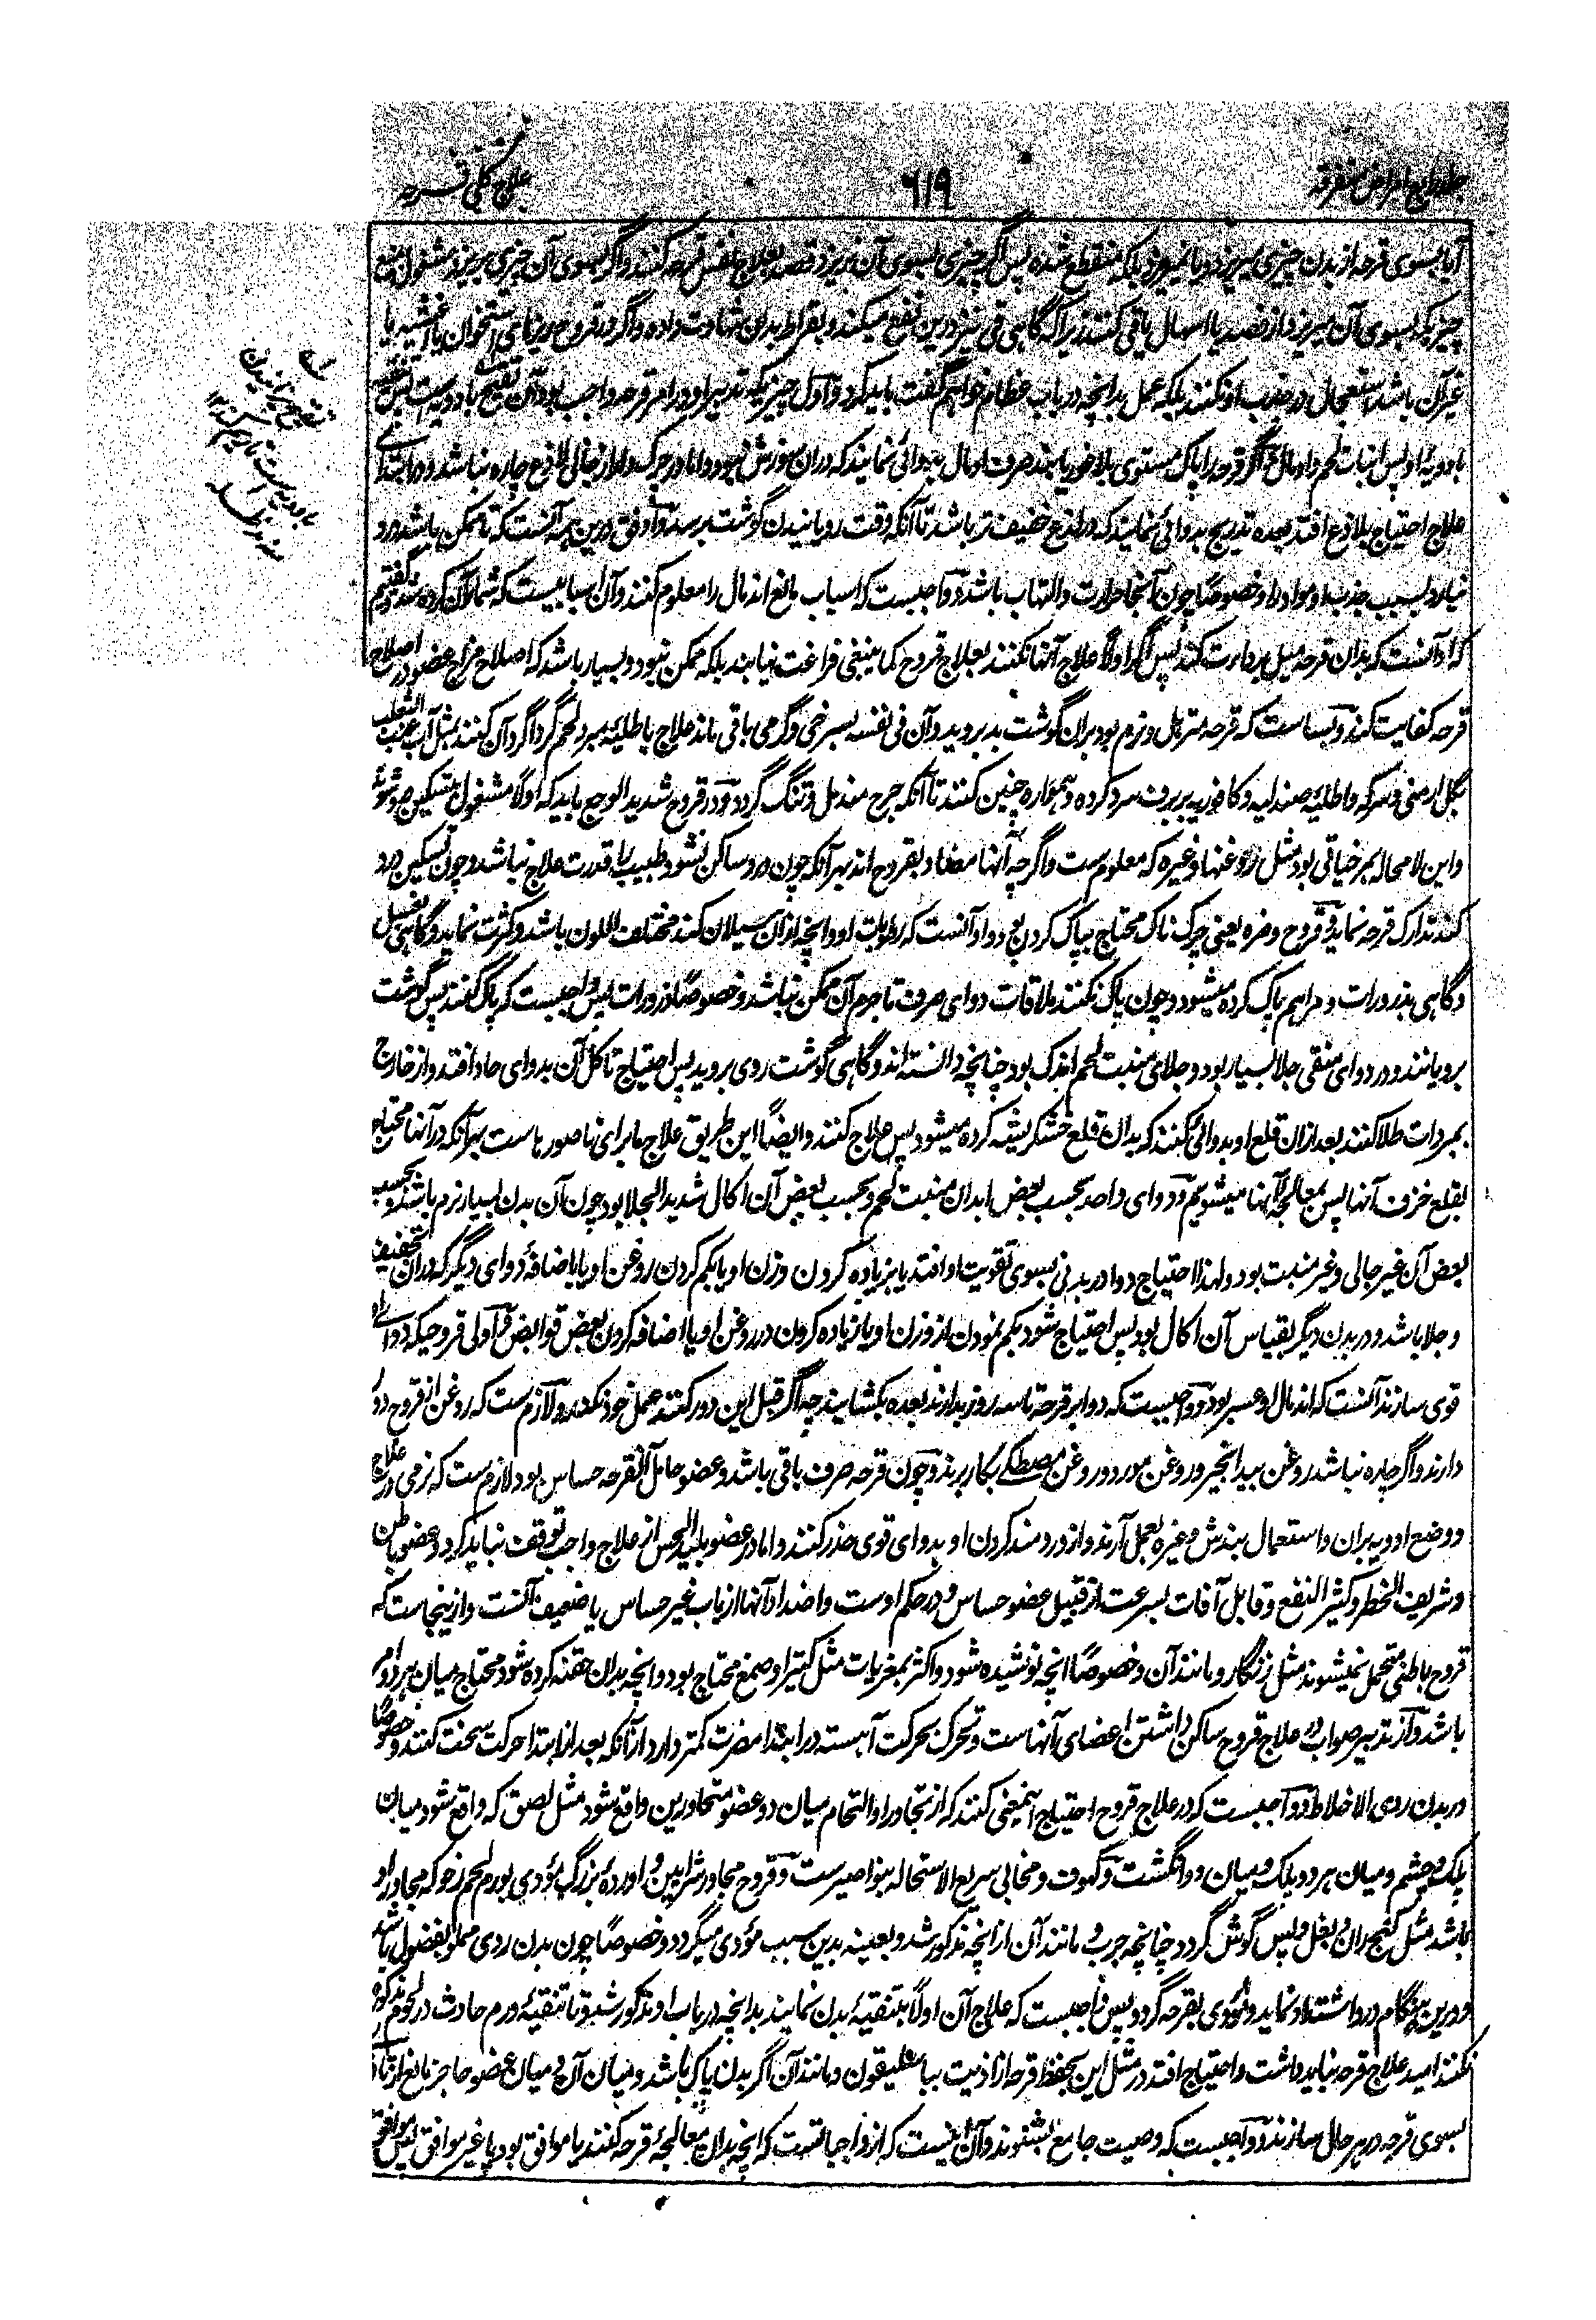 جلد رابع امراض متفرقه
۶۱۹
علاج کلی قرحه
آیا بسوی قرحه از بدن چیزی میریزد و یا نمیریزد بلکه منقطع شده پس اگر چیزی بسوی آن نریزد قصد بعلاج نفس قرحه کنند و اگر بسوی آن چیزی بریزد مشغول بمنع
چیزیکه بسوی آن میریزد از فصد یا اسهال یا قی کنند زیرا که گاهی قی نیز درین نفع میکند و بقراط بدان شهادت داده و اگر در قروح ریزهای استخوان یا اغشیه یا
غیر آن باشد استعجال در جذب او نکنند بلکه عمل بدانچه در باب عظام خواهم گفت باید کرد و اول چیزیکه تدبیر او در امر قرحه واجب بود آن تقیح بادویه است پس تنقیه
بادویه او پس انبات لحم و ادمال و اگر قرحه را پاک مستوی بلا غور یابند صرف ادمال بدوائی نمایند که دران سوزش نبود و اما در چرک دار از جالی لاذع چاره نباشد و در ابتدای
علاج احتیاج بلاذع افتد بعده بتدریج بدوائی نمایند که در لذع خفیف تر باشد تا آنکه وقت رویانیدن گوشت برسد و اوفق درین همه آنست که تا ممکن باشد درد
نیارد بسبب جذب او مواد را و خصوصاً چون آنجا حرارت و التهاب باشد و واجبست که اسباب مانع اندمال را معلوم کنند و آن اسبابیست که شمار آن کرده شد و گفتیم
که او آنست که بدان قرحه میل برداءت کند پس اگر اولاً علاج آنها نکنند بعلاج قروح کما ینبغی فراغت نیابند بلکه ممکن نبود و بسیار باشد که اصلاح مزاج عضو در اصلاح
قرحه کفایت کند و بسا است که قرحه مترهل و تورم بود بران گوشت بد بروید و آن فی نفسه بسرخی و گرمی باقی ماند علاج باطلیه مبرد لحم گرداگرد آن کنند مثل آب عنب الثعلب
بگل ارمنی و سرکه و اطلیه صندلیه و کافوریه بر برف سرد کرده و همواره چنین کنند تا آنکه جرح مندمل و تنگ گردد و در قروح شدید الوجع باید که اولاً مشغول بتسکین درد شوند
و این لا محاله بمرخیاتی بود مثل روغنها و غیره که معلوم ست و اگر چه آنها مضاد بقروح اند بهر آنکه چون درد ساکن نشود طبیب را قدرت علاج نباشد و چون تسکین درد
کنند تدارک قرحه نمایند و قروح وضره یعنی چرک ناک محتاج بپاک کردن بود و او آنست که رطوبات او و انچه ازان سیلان کند مختلف اللون باشد و کثرت نماید و گاهی بغسل
و گاهی بذرورات و مراهم پاک کرده میشود و چون پاک نکنند ملاقات دوای صرف تا جرم آن ممکن نباشد و خصوصاً ذرورات پس واجبست که پاک کنند پس گوشت
برویانند و در دوای منقی جلا بسیار بود و جلای منبت لحم اندک بود چنانچه دانسته اند و گاهی گوشت ردی بروید پس احتیاج تاکل آن بدوای حاد افتد و از خارج
بمبردات طلا کنند بعد ازان قلع او بدوائی کنند که بدان قلع خشکریشه کرده میشود پس علاج کنند و ایضاً این طریق علاج ما برای ناصورها ست بهر آنکه در آنها محتاج
بقلع خزف آنها پس بمعالجه آنها میشویم و دوای واحد بحسب بعض ابدان منبت لحم و بحسب بعض آن اکال شدید الجلا بود چون آن بدن بسیار نرم باشد و بحسب
بعض آن غیر جالی و غیر منبت بود و لهذا احتیاج دوا در بدنی بسوی تقویت او افتد یا بزیاده کردن وزن او یا بکم کردن روغن او یا باضافه دوای دیگر که دران تجفیف
و جلا باشد و در بدن دیگر بقیاس آن اکال بود پس احتیاج شود بکم نمودن از وزن او یا زیاده کردن در روغن او یا اضافه کردن بعض قوابض و اولی قروحیکه دوای او
قوی سازند آنست که اندمال او عسیر بود و واجبست که دوا بر قرحه تا سه روز بدارند بعده بکشایند چه اگر قبل این دور کنند عمل خود نکند و لازم ست که روغن از قروح دور
دارند و اگر چاره نباشد روغن بید انجیر و روغن مورد و روغن مصطکی بکار برند و چون قرحه صرف باقی باشد و عضو حامل القرحه حساس بود لازم ست که نرمی در علاج
و وضع ادویه بران و استعمال بندش و غیره بعمل آرند و از دردمند کردن او بدوای قوی حذر کنند و اما در عضو بلید الحس از علاج واجب توقف نباید کرد و عضو باطن
و شریف الخطر و کثیر النفع و قابل آفات بسرعت از قبیل عضو حساس و در حکم اوست و اضداد آنها از باب غیر حساس یا ضعیف آنست و ازینجاست که
قروح باطنی متحمل نمیشوند مثل زنگار و مانند آن و خصوصاً انچه نوشیده شود و اکثر بمغریات مثل کتیرا و صمغ محتاج بود و انچه بدان حقنه کرده شود محتاج میان هر دو امر
باشد و از تدبیر صواب در علاج قروح ساکن داشتن اعضای آنها ست و تحرک بحرکت آهسته در ابتدا مضرت کمتر دارد از آنکه بعد از ابتدا حرکت سخت کنند و خصوصاً
در بدن ردی الاخلاط و واجبست که در علاج قروح احتیاج اینمعنی کنند که از تجاور او التحام میان دو عضو متجاورین واقع نشود مثل لصق که واقع شود میان
پلک و چشم و میان هر دو پلک و میان دو انگشت و کهوف و مخابی سریع الاستحاله بنواصیر ست و قروح مجاور شرایین و اورده بزرگ مؤدی بورم لحم رخو که مجاور او
باشد مثل کنج ران و بغل و پس گوش گردد چنانچه جرب و مانند آن از انچه مذکور شد و بعینه بدین سبب مؤدی میگردد و خصوصاً چون بدن ردی مملو بفضول باشد
و درین هنگام درد اشتداد نماید و مؤدی بقرحه گردد پس واجبست که علاج آن اولاً بتنقیه بدن نمایند بدانچه در باب او مذکور شد و تا تنقیه ورم حادث در لحوم مذکور
نکنند امید علاج قرحه نباید داشت و احتیاج افتد در مثل این بحفظ قرحه از اذیت بباسلیقون و مانند آن اگر بدن پاک باشد و میان آن و میان عضو حاجز مانع
بسوی قرحه در هر حال سازند و واجبست که وصیت جامع بشنوند و آن اینست که از واجباتست که انچه بدان معالجه قرحه کنند یا موافق بود یا غیر موافق پس موافق